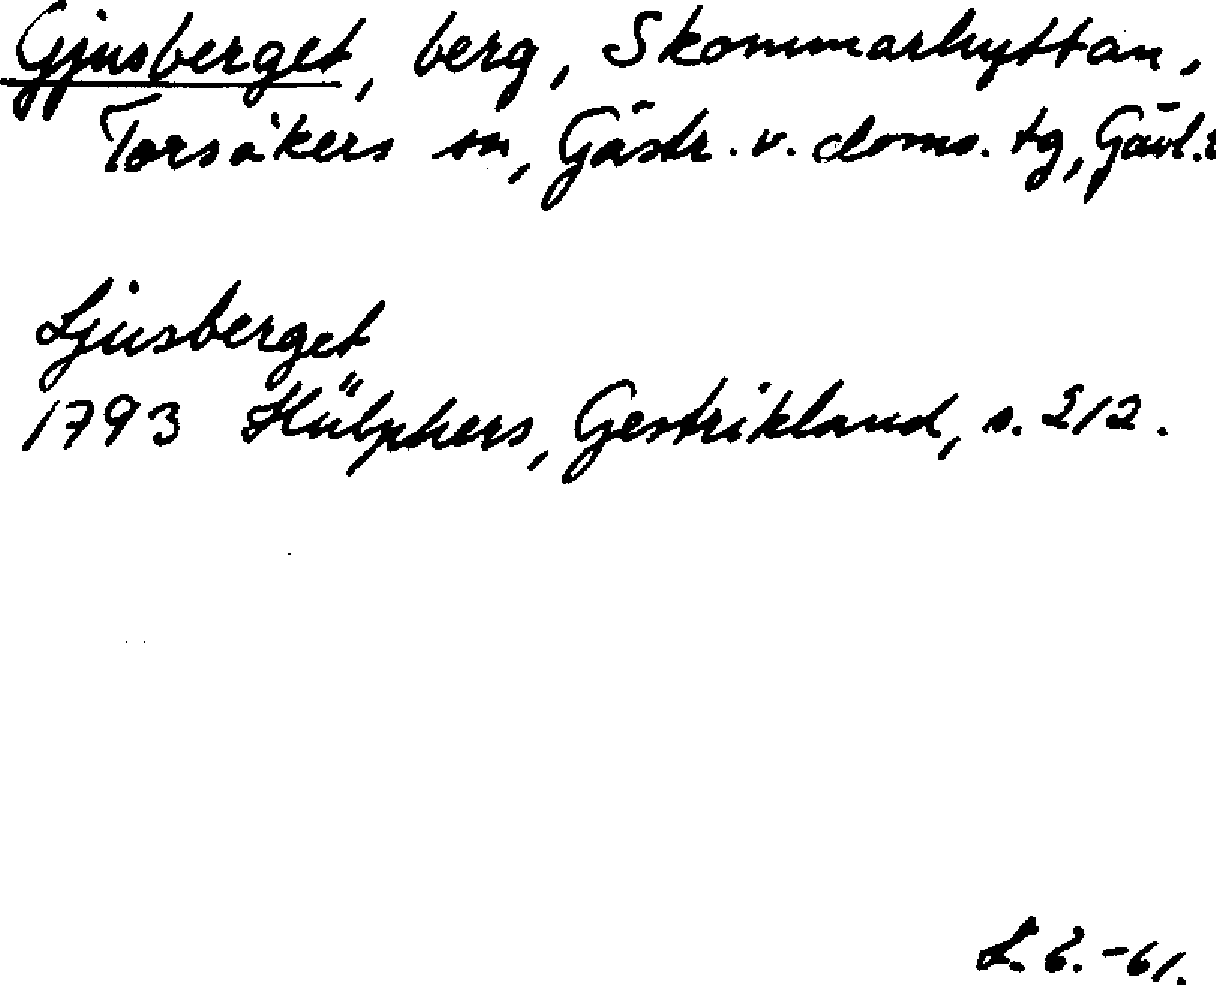 Gjusberget, berg, Skommarhyttan,
Torsåkers sn, Gästr. v. doms. tg, Gävl.
Ljusberget
1793 Hülphers, Gestrikland, s. 212.
-61.